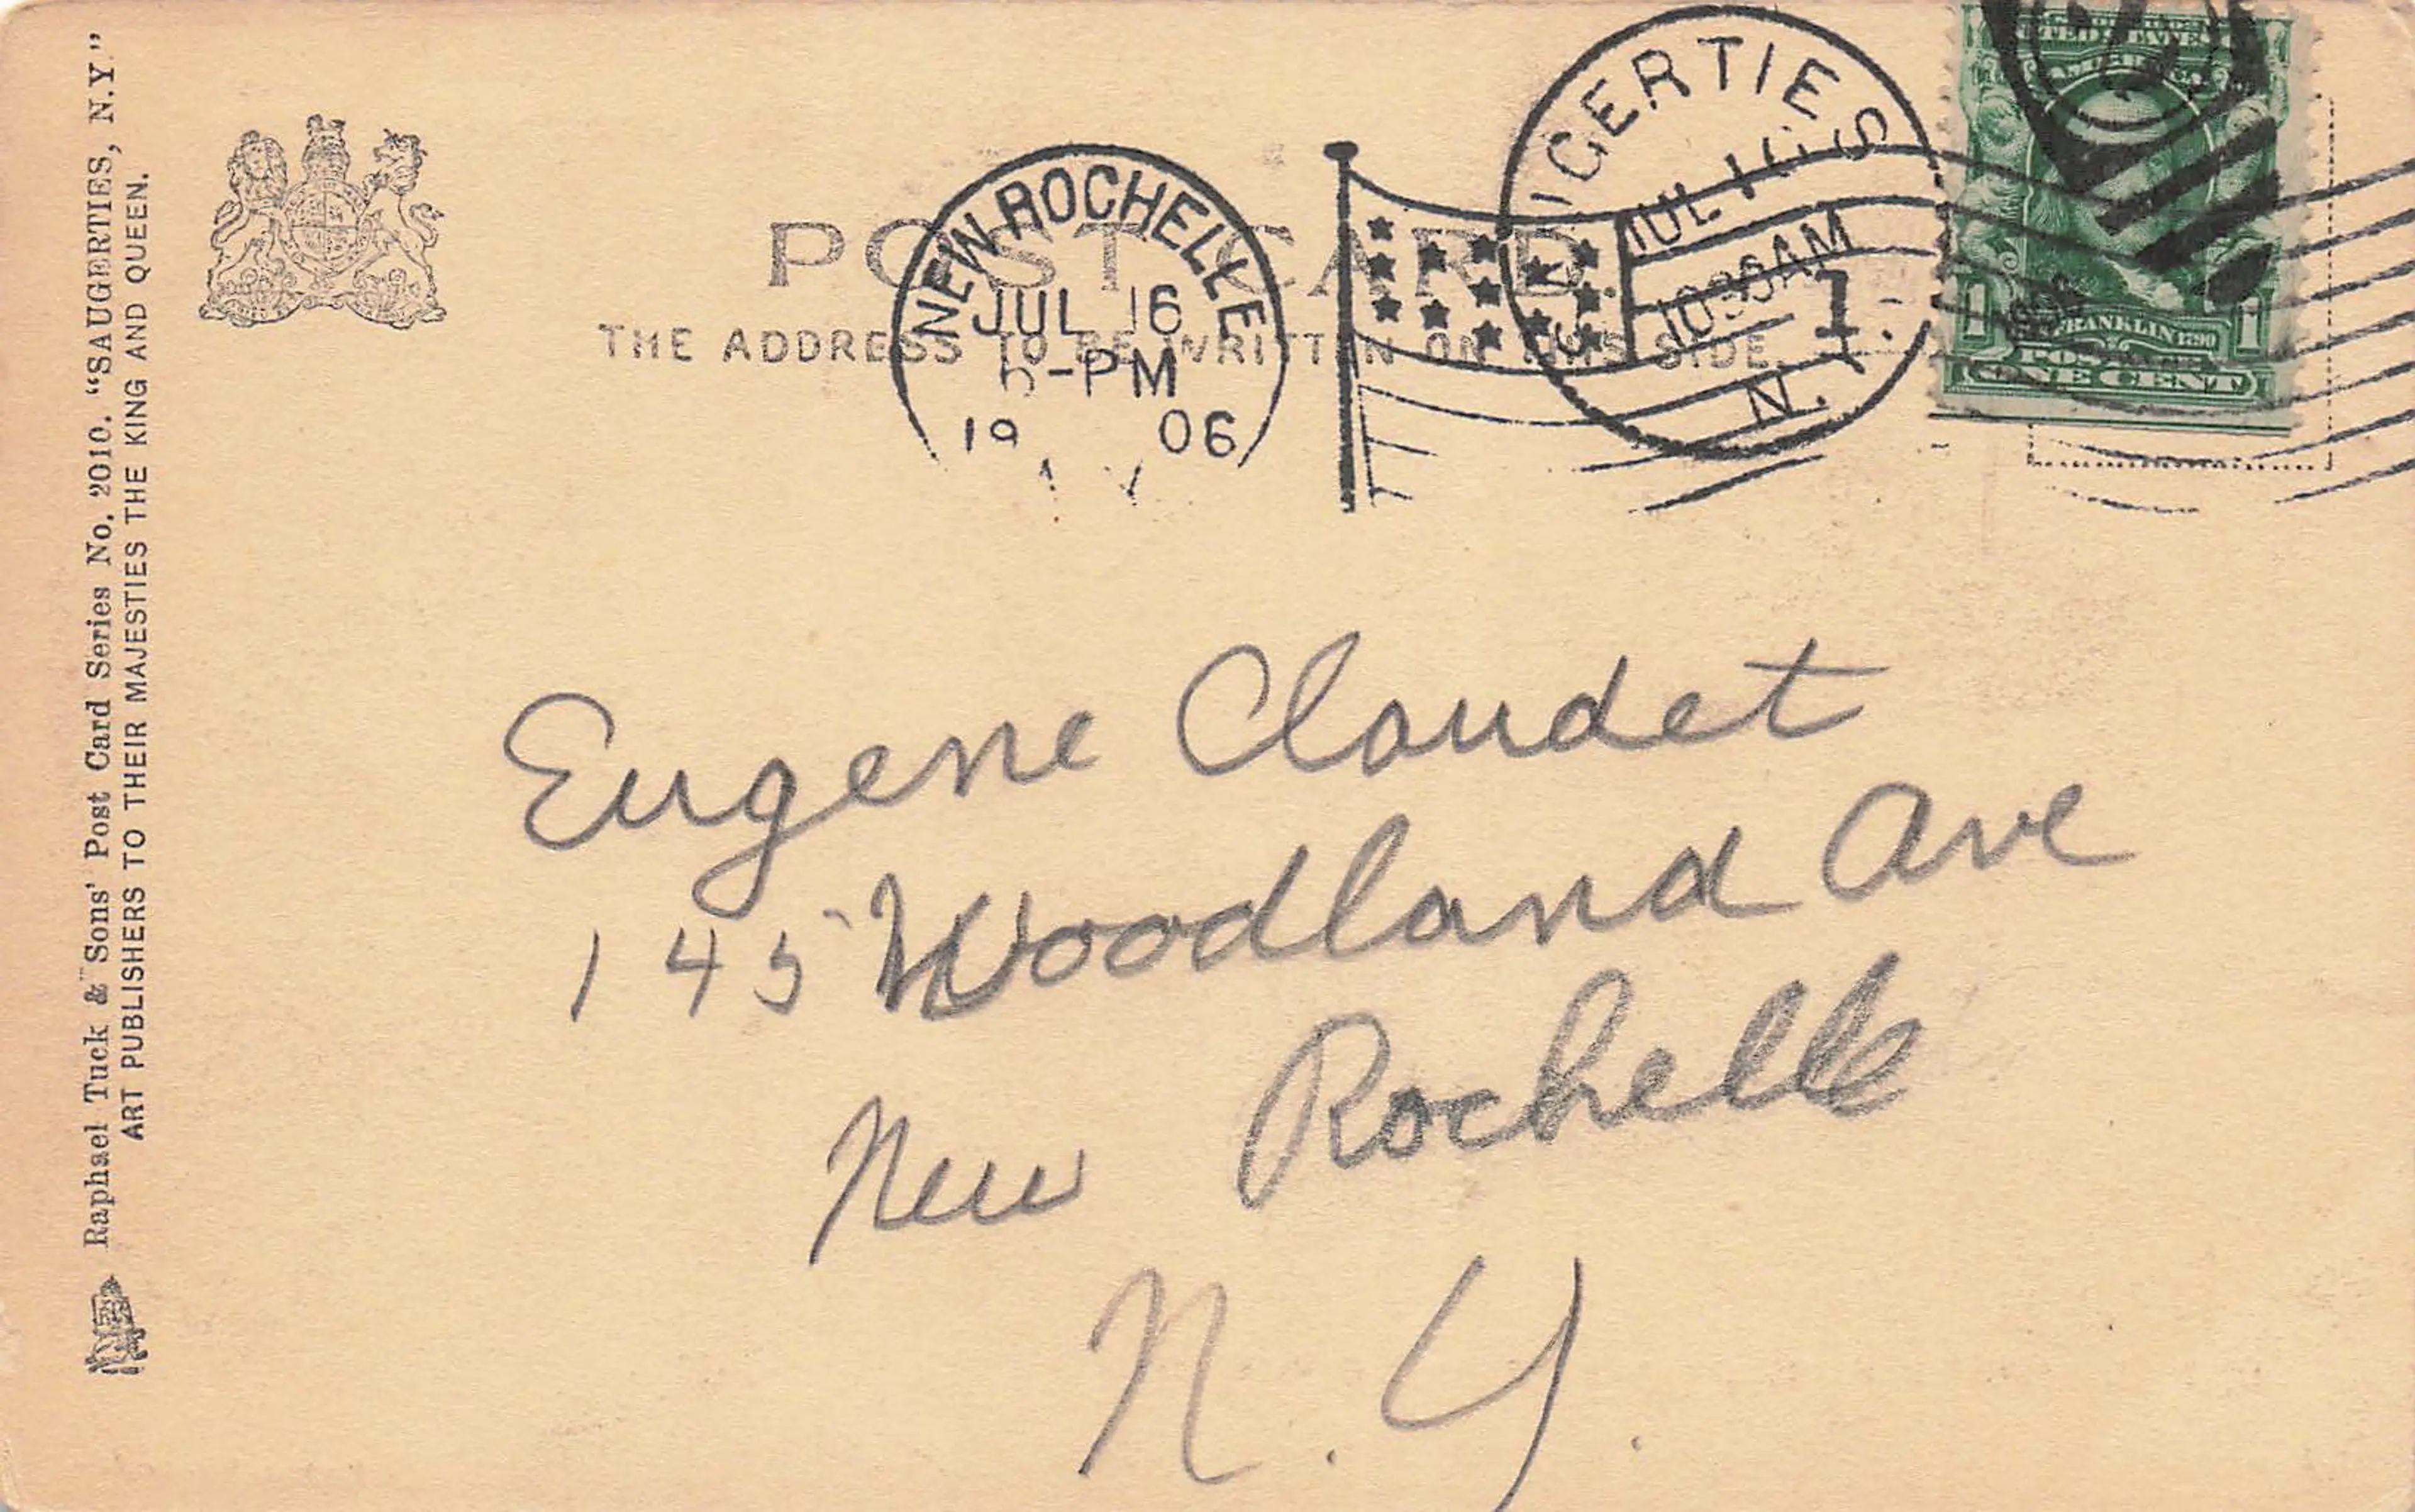 Raphael Tuck & Sons' Post Card Series No. 2010. "SAUGERTIES, N.Y."
ART PUBLISHERS TO THEIR MAJESTIES THE KING AND QUEEN.
POST CARD.
THE ADDRESS TO BE WRITTEN ON THIS SIDE.
NEW ROCHELLE
JUL 16
5-PM
19 06
N.Y.
SAUGERTIES
JUL 16
1030AM
N.Y.
UNITED STATES
OF AMERICA
FRANKLIN 1790
1 1
POSTAGE
ONE CENT
Eugene Claudet
145 Woodland Ave
New Rochelle
N.Y.